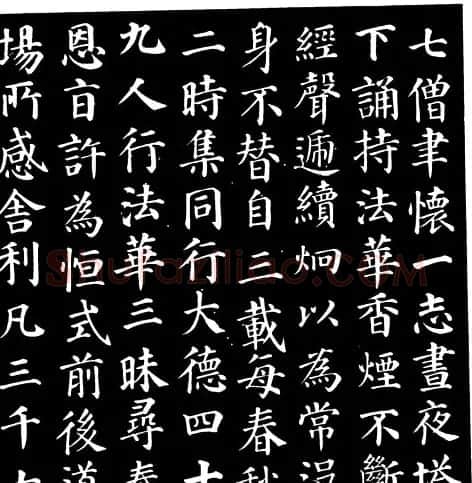 七僧聿懷一志晝夜塔
下誦持法華香煙不斷
經聲遞續炯以為常没
身不替自三載每春秋
二時集同行大德四十
九人行法華三昧尋奉
恩旨許為恒式前後道
場所感舍利凡三千七
Shufaziliao.COM